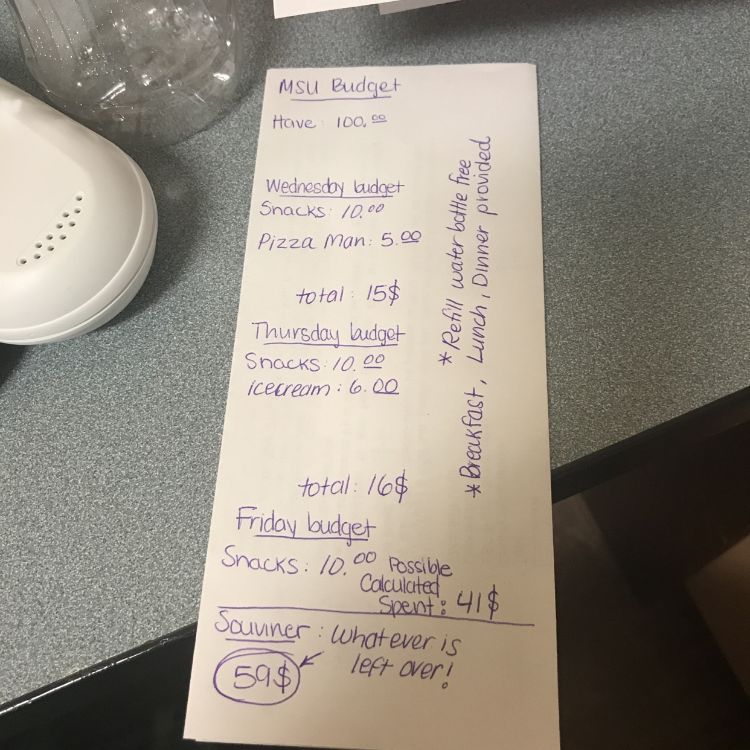 MSU Budget
Have: 100.00
Wednesday budget
Snacks: 10.00
Pizza Man: 5.00
total: 15$
Thursday budget
Snacks: 10.00
icecream: 6.00
total: 16$
Friday budget
Snacks: 10.00 Possible
Calculated
Spent: 41$
Souviner: Whatever is
left over!
59$
* Refill water bottle free
* Breakfast, Lunch, Dinner provided